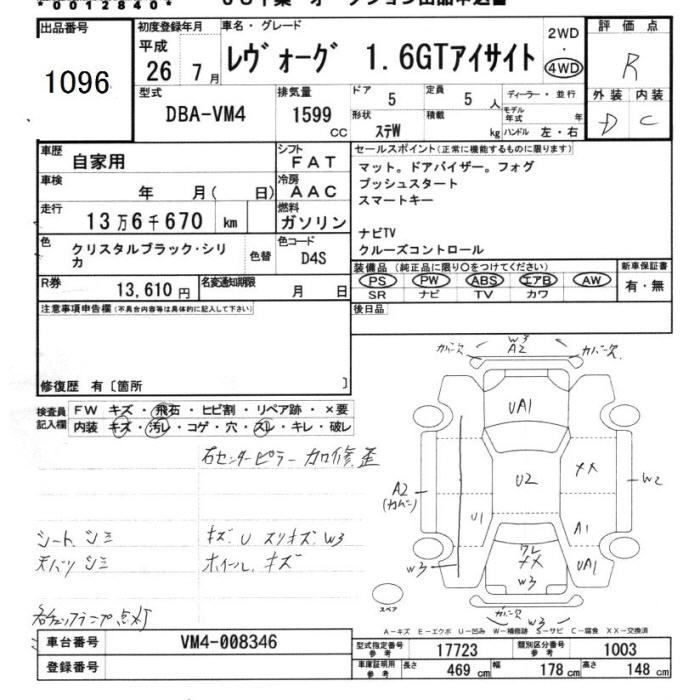 *0012840*
出品番号
1096
初度登録年月
平成
26 7月
車名・グレード
レヴォーグ 1.6GTアイサイト
2WD
・
4WD
評価点
R
外装 内装
D C
型式
DBA-VM4
排気量
1599
CC
ドア
5
定員
5 人
形状
ステW
積載
kg
ディーラー・並行
モデル年式 年
ハンドル 左・右
車歴
自家用
シフト
FAT
車検
年 月( 日)
冷房
AAC
走行
13万6千670 km
燃料
ガソリン
色
クリスタルブラック・シリカ
色替
色コード
D4S
R券
13,610 円
名変通知期限
月 日
セールスポイント(正常に機能するものに限ります)
マット。ドアバイザー。フォグ
プッシュスタート
スマートキー
ナビTV
クルーズコントロール
装備品(純正品に限り○をつけてください)
新車保証書
PS PW ABS エアB AW
SR ナビ TV カワ
有・無
後日品
注意事項申告欄(不具合内容等は具体的に記入して下さい)
修復歴 有〔箇所 〕
検査員
記入欄
FW キズ・飛石・ヒビ割・リペア跡・×要
内装 キズ・汚レ・コゲ・穴・スレ・キレ・破レ
右センターピラー カロ修歪
シート シミ
天バリ シミ
キズ U スリキズ W3
ホイール キズ
各チェックランプ点灯
カバー欠
W3
A2
カバー欠
UA1
U2
XX
W2
A2
(カバー)
U1
A1
UA1
W3
ワレ
XX
W3
スペア
カバー欠
W3
A－キズ E－エクボ U－凹み W－補修跡 S－サビ C－腐食 XX－交換済
車台番号
VM4-008346
登録番号
型式指定番号
参考
17723
類別区分番号
参考
1003
車庫証明用
参考
長さ 469 cm
幅 178 cm
高さ 148 cm